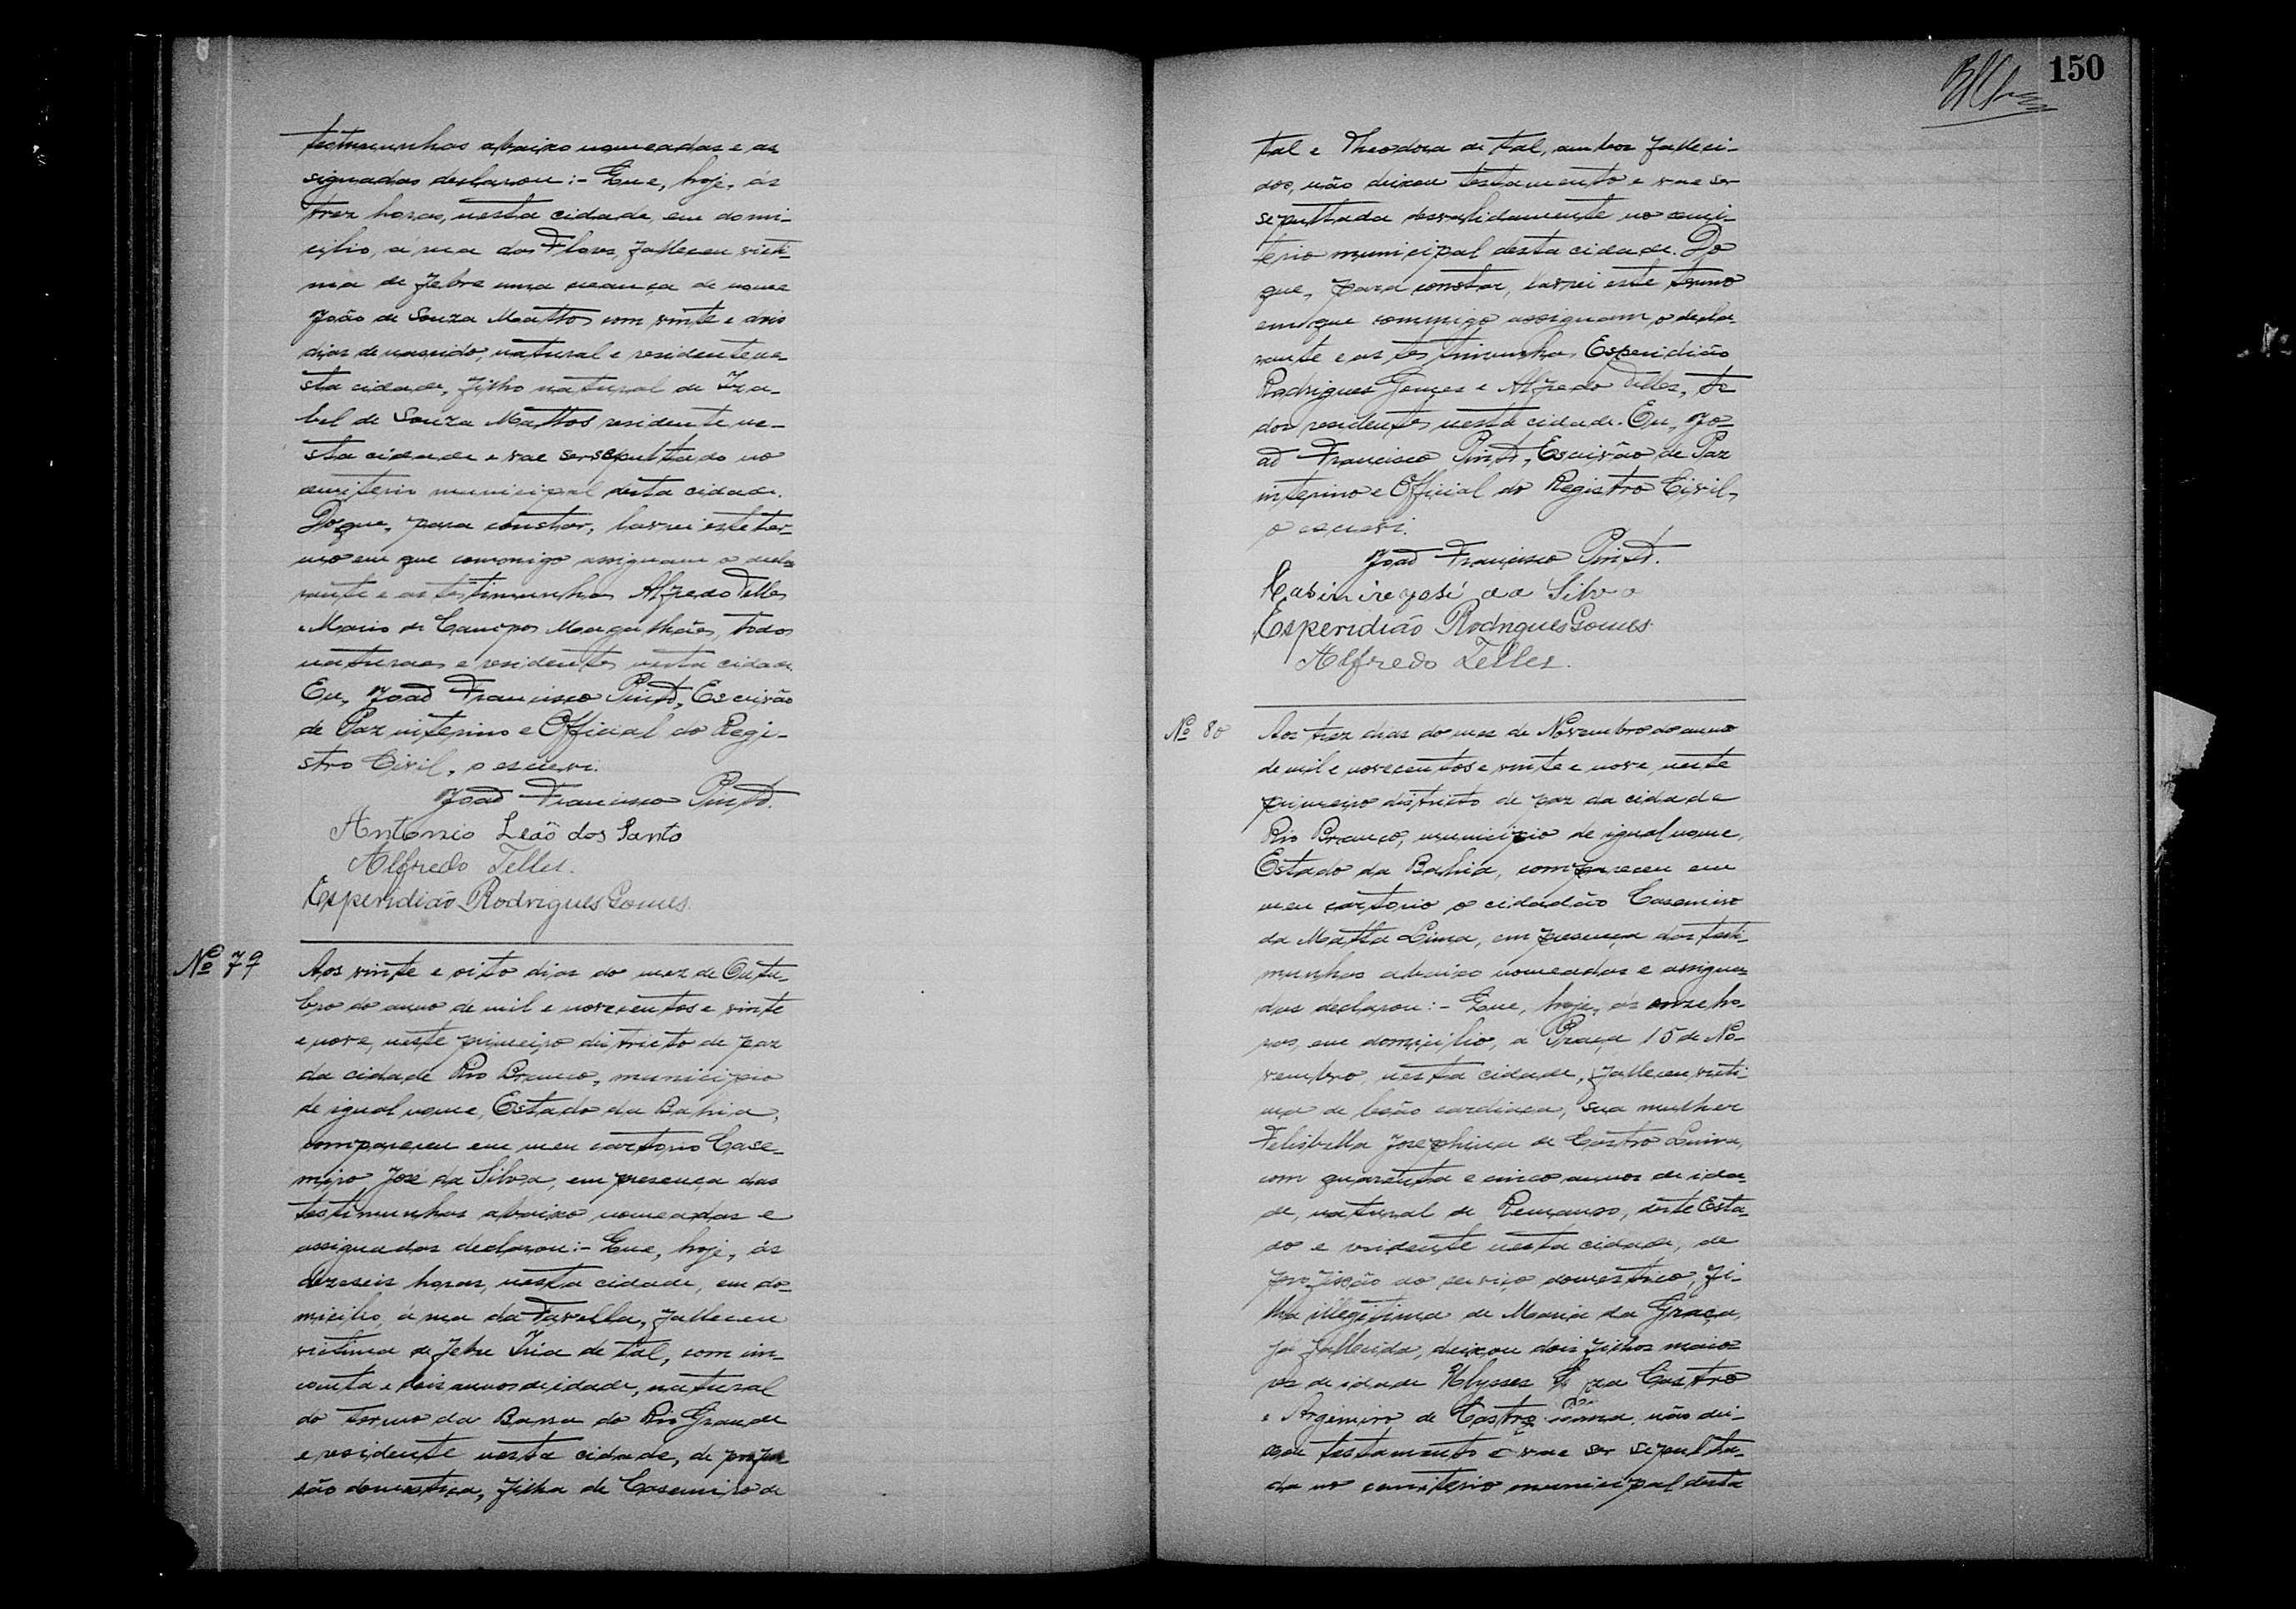 testemunhas abaixo nomeadas e as
signadas declarou:- Que, hoje, ás
trez horas, nesta cidade, em domi-
cilio, á rua das Flores, falleceu victi-
ma de febre uma creança de nome
João de Souza Mattos com vinte e dois
dias de nascido, natural e residente ne-
sta cidade, filho natural de Iza-
bel de Souza Mattos residente ne-
sta cidade e vae ser sepultado no
cemiterio municipal desta cidade.
Do que, para constar, lavrei este ter-
mo em que commigo assignam o decla
rante e as testimunhas Alfredo Telles
e Mario de Campos Magalhães, todos
naturaes e residentes nesta cidade.
Eu, João Francisco Pinto, Escrivão
de Paz interino e Official do Regi-
stro Civil, o escrevi.
João Francisco Pinto.
Antonio Leaõ dos Santo
Alfredo Telles.
Esperidião Rodrigues Gomes.
Nº 79
Aos vinte e oito dias do mez de Outu-
bro do anno de mil e novecentos e vinte
e nove, neste primeiro districto de paz
da cidade Rio Branco, municipio
de igual nome, Estado da Bahia,
compareceu em meu cartorio Case-
miro José da Silva, em presença das
testimunhas abaixo nomeadas e
assignadas declarou:- Que, hoje, ás
dezeseis horas, nesta cidade, em do-
micilio, á rua da Favella, falleceu
victima de febre Iria de tal, com cin-
coenta e dois annos de idade, natural
do termo da Barra do Rio Grande
e residente nesta cidade, de profis
são domestica, filha de Casemiro de
150
tal e Theodora de tal, ambos falleci-
dos, não deixou testamento e vae ser
sepultada desvalidamente no cemi-
terio municipal desta cidade. Do
que, para constar, lavrei este termo
em que commigo assignam o decla-
rante e as testimunhas Esperidião
Rodrigues Gomes e Alfredo Telles, to
dos residentes nesta cidade. Eu, Jo-
ão Francisco Pinto, Escrivão de Paz
interino e Official do Registro Civil,
o escrevi.
João Francisco Pinto.
Casimiro josé da Silva
Esperidião Rodrigues Gomes.
Alfredo Telles.
Nº 80
Aos trez dias do mez de Novembro do anno
de mil e novecentos e vinte e nove, neste
primeiro districto de paz da cidade
Rio Branco, municipio de igual nome,
Estado da Bahia, compareceu em
meu cartorio o cidadão Casemiro
da Matta Lima, em presença das testi-
munhas abaixo nomeadas e assigna-
das declarou:- Que, hoje, ás onze ho-
ras, em domicilio, á Praça 15 de No-
vembro, nesta cidade, falleceu victi-
ma de lesão cardiaca, sua mulher
Felisbella Josephina de Castro Lima,
com quarenta e cinco annos de ida-
de, natural de Remanso, deste Esta-
do e residente nesta cidade, de
profissão do serviço domestico, fi-
lha illegitima de Maria da Graça,
já fallecida, deixou dois filhos maio-
res de idade Ulysses Castro
e Argemiro de Castro não dei-
xou testamento e vae ser sepulta-
da no cemiterio municipal desta